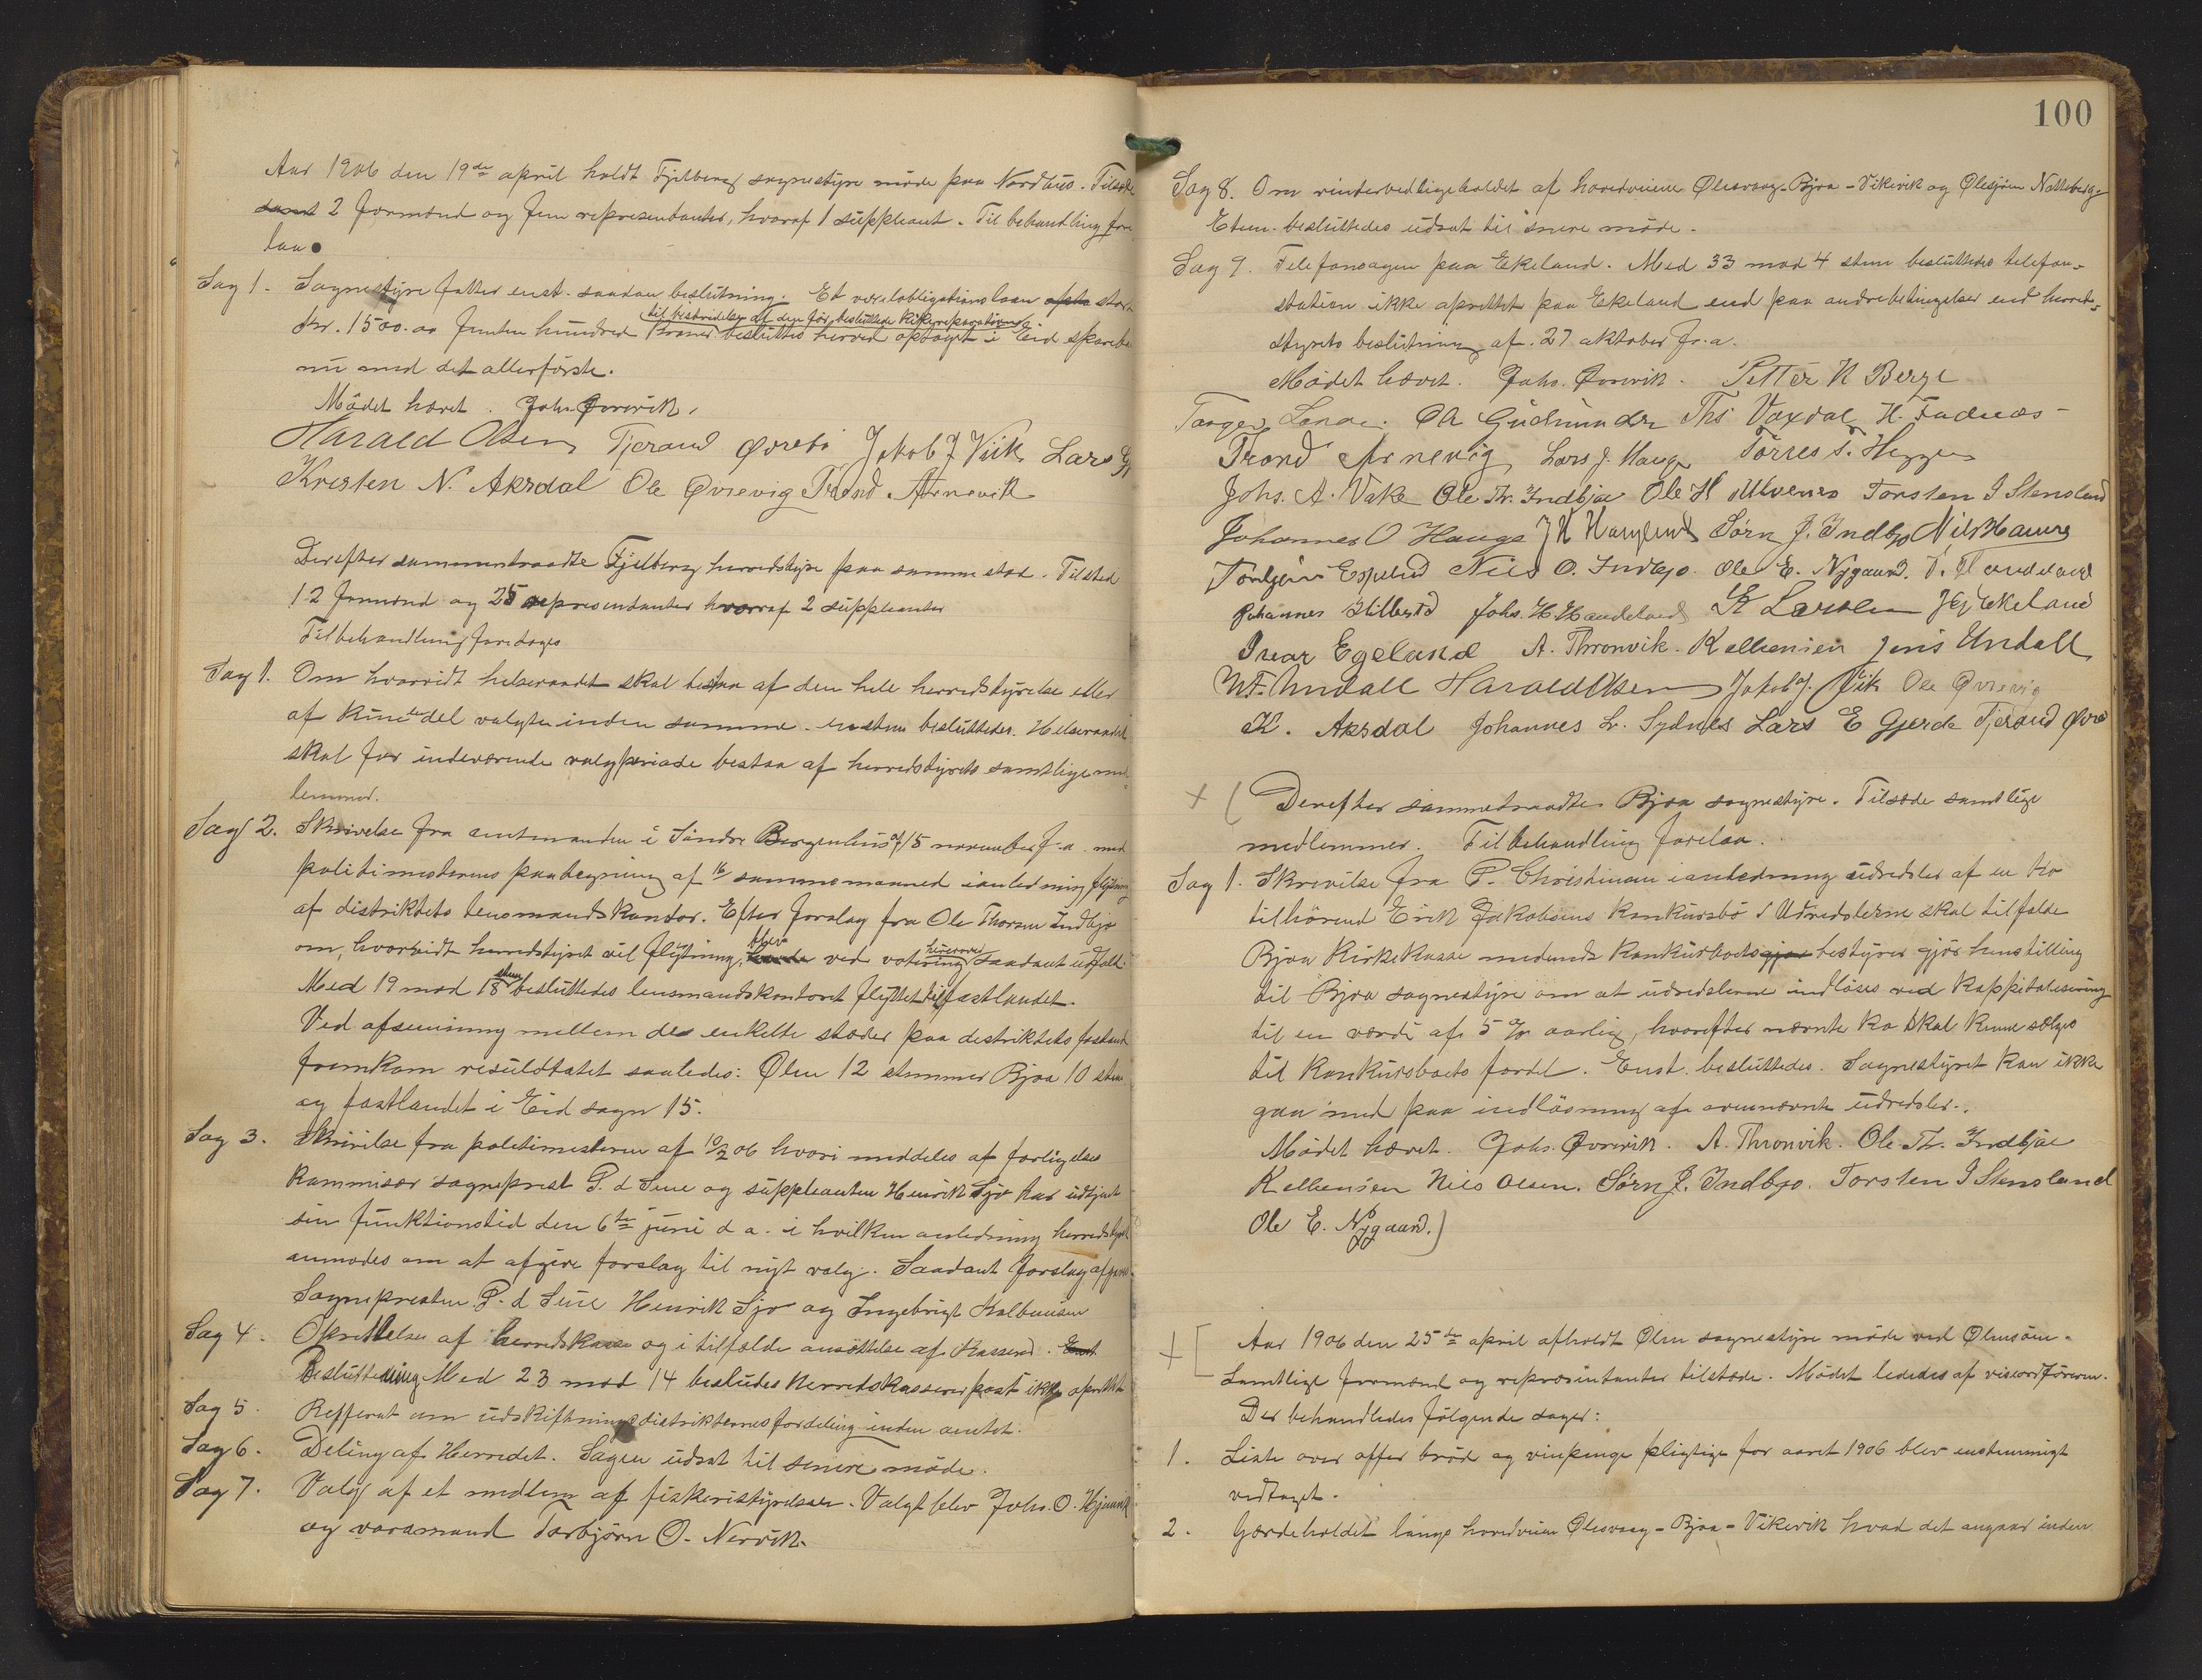 Aar 1906 den 19de april holdt Fjelberg sognestyre møde paa Nordhus. Tilstede
samt 2 formænd og fem repræsentanter, hvoraf 1 suppleant. Til behandling fore
laa
Sag 1. Sognestyre fatter enst. saadan beslutning. Et vexelobligationslaan stort
til bestridelse af den før besluttede kirkereparation
Kr. 1500.00 femten hundred kroner besluttes herved optaget i Eid spareba
nu med det allerførste.
Mødet hævet. Johs. Øvrevik.
Harald Olsen Tjerand Øvrebø Jakob J Viik Lars Gj
Kristen N. Aksdal Ole Øvrevig Trond Arnevik
Derefter sammentraadte Fjelberg herredstyre paa samme sted. Tilsted
12 formænd og 25 repræsentanter hvoraf 2 suppleanter
Til behandling foretoges
Sag 1. Om hvorvidt helseraadet skal bestaa af den hele herredstyrelse eller
af kun en del valgte inden samme. Enstem besluttedes. Helseraadet
skal for indeværende valgperiode bestaa af herredstyrets samtlige med
lemmer.
Sag 2. Skrivelse fra amtmanden i Søndre Bergenhus af 15 november f.a. med
politimesterens paategning af 16/ samme maaned i anledning flytning
af distriktets lensmandskontor. Efter forslag fra Ole Thorsen Indbjo
om, hvorvidt herredstyret vil flytning, blev ved votering herover saadant udfald.
Med 19 mod 18 stem besluttedes lensmandskontoret flyttet til fastlandet.
Ved afstemning mellem de enkelte stæder paa distriktets fastland
fremkom resuldtatet saaledes: Ølen 12 stemmer Bjoa 10 stem
og fastlandet i Eid sogn 15.
Sag 3. Skrivelse fra politimesteren af 10/2 06 hvori meddeles at forligelses
kommisær sogneprest P. d Seue og suppleanten Henrik Sjo har udtjent
sin funktionstid den 6te juni d a. i hvilken anledning herredstyret
anmodes om at afgive forslag til nyt valg. Saadant forslag afgaves
Sognepresten P. d Seue Henrik Sjo og Ingebrigt Kalbensen
Sag 4. Oprettelse af herredskasse og i tilfælde ansættelse af Kasserer. Enst
Beslutteding Med 23 mod 14 besludes Herredskassererpost ikke oprettet
Sag 5. Refferat om udskiftningsdistrikternes fordeling inden amtet.
Sag 6. Deling af Herredet. Sagen udsat til senere møde.
Sag 7. Valg af et medlem af fiskeristyrelsen. Valgt blev Johs. O. Hjemvik
og varamand Torbjørn O. Nervik.
100
Sag 8. Om vindervedligeholdet af hovedveiene Ølesvaag-Bjoa-Vikevik og Ølesjøen
Etem. besluttedes udsat til senere møde.
Sag 9. Telefonsagen paa Ekeland. Med 33 mod 4 stem besluttedes telefon-
station ikke oprettet paa Ekeland end paa andre betingelser end herreds-
styrets beslutning af 27 oktober f.a.
Mødet hævet. Johs. Øvrevik. Petter N Berge
Ths Vaxdal H. Fadnæs
Trond Arnevig Lars J. Hauge Torres T. Hegge
Johs. A. Vake Ole Th. Indbjoe Ole H Ulvenes Torsten I Stensland
Johannes O Hauge J H Haugland Sørn J. Indbjo Nils Haura
Torbjørn Espeland Nils O. Indbjo. Ole E. Nygaard.
Johannes Johs. H. Handeland K Larsen Ekeland
Ivar Egeland A. Thronvik. K Albensen Jens Undall
M. Undall Harald Olsen Jakob J. Vik Ole Øvrevig
K. Aksdal Johannes L. Sydnes Lars E Gjerde Tjerand Øvre
+ ( Derefter sammentraadte Bjoa sognestyre. Tilstede samtlige
medlemmer. Til behandling forelaa.
Sag 1. Skrivelse fra P. Christinan i anledning udredsler af en ko
tilhørend Erik Jakobsens konkursbo / Udredslerne skal tilfalde
Bjoa Kirkekasse medends konkurboets gjør bestyrer gjør henstilling
til Bjoa sognestyre om at udredslerne indløses ved kappitalisering
til en værdi af 5 % aarlig, hvorefter nævnte ko skal kunne sælges
til konkursboets fordel. Enst. besluttedes. Sognestyret kan ikke
gaa med paa indløsning af ovennævnte udredsler.
Mødet hævet. Johs. Øvrevik. A. Thronvik. Ole Th. Indbjoe
K Albensen Nils Olsen. Sørn J. Indbjo. Torsten I Stensland
Ole E. Nygaard.)
+ [ Aar 1906 den 25de april afholdt Ølen sognestyre møde ved Ølensøen.
Samtlige formænd og repræsintanter tilstede. Mødet lededes af viseordføreren.
Der behandledes følgende sager:
1. Liste over offer brød og vinpenge pligtige for aaret 1906 blev enstemmigt
vedtaget.
2. Gjerdeholdet langs hovedveien Ølesvaag-Bjoa-Vikevik hvad det angaar inden